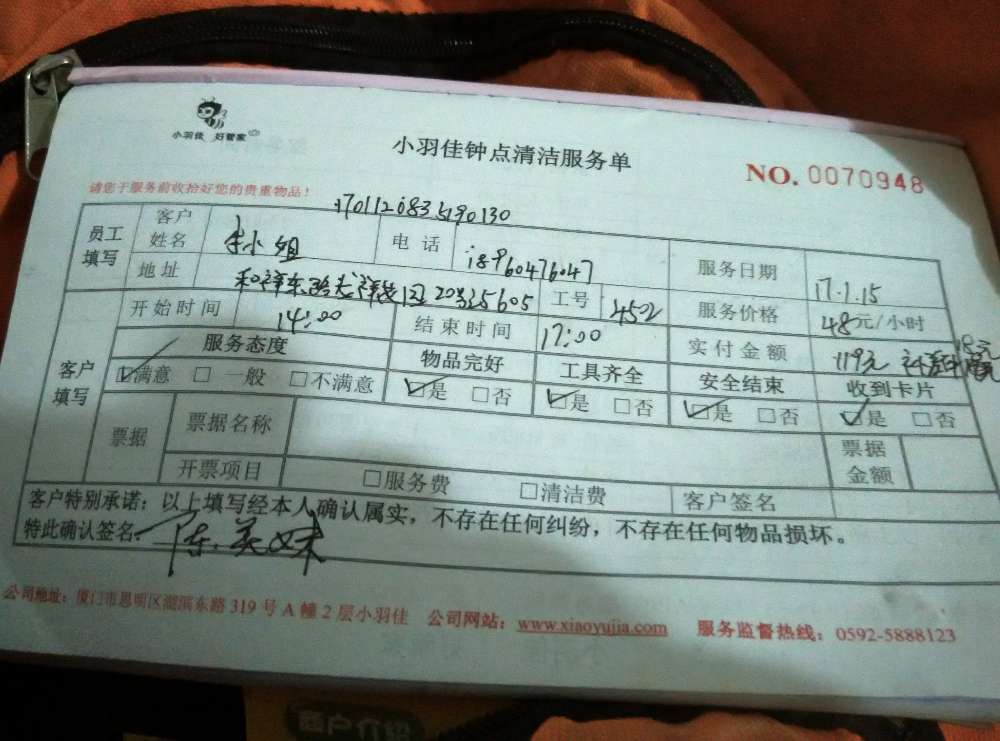 小羽佳 好管家
小羽佳钟点清洁服务单
NO. 0070948
请您于服务前收拾好您的贵重物品!
员工填写
客户姓名
小姐
电话
18960476047
服务日期
17.1.15
地址
工号
4502
服务价格
48元/小时
客户填写
开始时间
14:00
结束时间
17:00
实付金额
119元
服务态度
物品完好
工具齐全
安全结束
收到卡片
☑满意 □一般 □不满意
☑是 □否
☑是 □否
☑是 □否
☑是 □否
票据
票据名称
票据金额
开票项目
□服务费 □清洁费
客户签名
客户特别承诺：以上填写经本人确认属实，不存在任何纠纷，不存在任何物品损坏。
特此确认签名 陈美妹
公司地址：厦门市思明区湖滨东路319号A幢2层小羽佳 公司网站：www.xiaoyujia.com 服务监督热线：0592-5888123